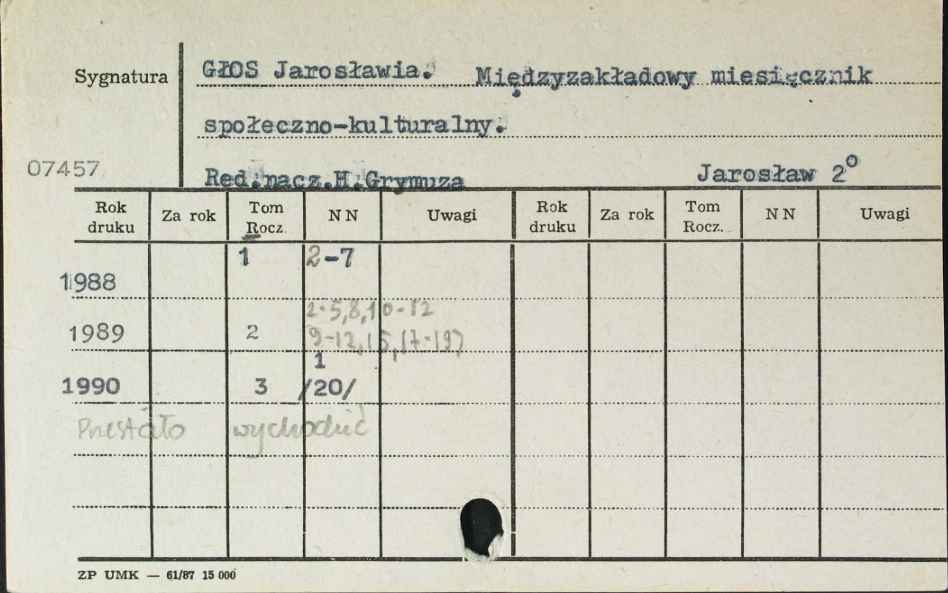 Sygnatura GŁOS Jarosławia. Międzyzakładowy miesięcznik
społeczno-kulturalny.
07457 Red.nacz.H.Grymuza Jarosław 2°
Rok druku Za rok Tom Rocz. N N Uwagi Rok druku Za rok Tom Rocz. N N Uwagi
1988 1 2-7
2-5,8,10-12
1989 2 9-12,15,17-19/
1
1990 3 /20/
Przestało wychodzić
ZP UMK — 61/87 15 000